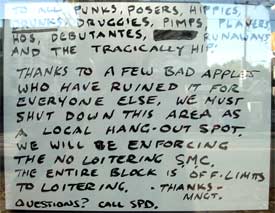 TO ALL PUNKS, POSERS, HIPPIES,
DRUNKS, DRUGGIES, PIMPS, PLAYERS
HOS, DEBUTANTES, RUNAWAYS
AND THE TRAGICALLY HIP.
THANKS TO A FEW BAD APPLES
WHO HAVE RUINED IT FOR
EVERYONE ELSE, WE MUST
SHUT DOWN THIS AREA AS
A LOCAL HANG-OUT SPOT.
WE WILL BE ENFORCING
THE NO LOITERING SMC.
THE ENTIRE BLOCK IS OFF-LIMITS
TO LOITERING. -THANKS-
MNGT.
QUESTIONS? CALL SPD.